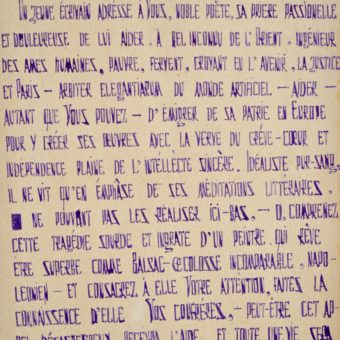 UN JEUNE ÉCRIVAIN ADRESSE À VOUS, NOBLE POÈTE, SA PRIÈRE PASSIONELLE
ET DOULEUREUSE DE LUI AIDER, À BEL INCONNU DE L'ORIENT, INGÉNIEUR
DES AMES HUMAINES, PAUVRE, FERVENT, CROYANT EU L'AVENIR, LA JUSTICE
ET PARIS – ARBITER ELEGANTIARUM DU MONDE ARTIFICIEL – AIDER –
AUTANT QUE VOUS POUVEZ – D'ÉMIGRER DE SA PATRIE EN EUROPE
POUR Y CRÉER SES ŒUVRES AVEC LA VERVE DU CRÉVE-CŒUR ET
INDÉPENDENCE PLAINE DE L'INTELLÈCTE SINCÈRE. IDÉALISTE PUR-SANG,
IL NE VIT QU'EN EMPHÂSE DE SES MÉDITATIONS LITTERAIRES,
NE POUVANT PAS LES RÉALISER ICI-BAS. – O, COMPRENEZ
CETTE TRAGÉDIE SOURDE ET INGRATE D'UN PEINTRE, QUI RÊVE
ÊTRE SUPERBE COMME BALSAC – COLOSSE INCOMPARABLE, NAPO-
LEONIEN – ET CONSACREZ À ELLE VOTRE ATTENTION, FAITES LA
CONNAISSANCE D'ELLE VOS CONFRÈRES, – PEUT-ÊTRE CET AP-
PEL DÉSASTREUX RECEVRA L'AIDE, ET TOUTE UNE VIE SERA